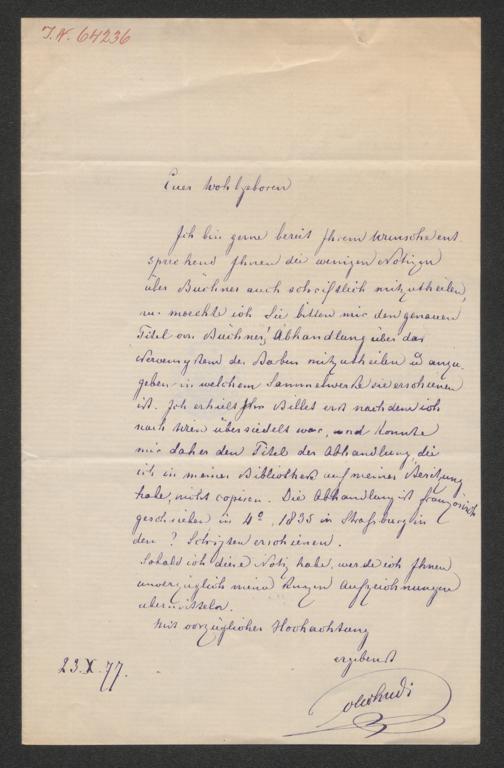 J.N. 64236
Euer Wohlgeboren
Ich bin gerne bereit Ihrem Wunsche ent
sprechend Ihnen die wenigen Notizen
über Büchner auch schriftlich mitzutheilen,
nur moechte ich Sie bitten mir den genauen
Titel von Büchners Abhandlung über das
Nervensystem der Barben mitzutheilen u anzu-
geben in welchem Sammelwerke sie erschienen
ist. Ich erhielt Ihr Billet erst nachdem ich
nach Wien übersiedelt war, und konnte
mir daher den Titel der Abhandlung, die
ich in meiner Bibliothek auf meiner Besitzung
habe, nicht copiren. Die Abhandlung ist französisch
geschrieben in 4º, 1835 in Straßburg in
den ? Schriften erschienen.
Sobald ich diese Notiz habe, werde ich Ihnen
unverzüglich meine kurzen Aufzeichnungen
übermitteln.
Mit vorzüglicher Hochachtung
ergebenst
23.X.77.
Tschudi